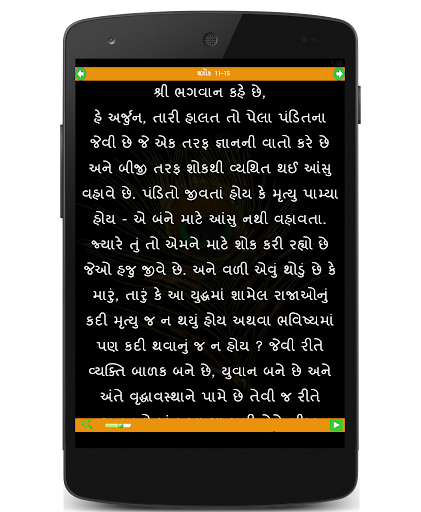 શ્લોક 11-15
શ્રી ભગવાન કહે છે,
હે અર્જુન, તારી હાલત તો પેલા પંડિતના
જેવી છે જે એક તરફ જ્ઞાનની વાતો કરે છે
અને બીજી તરફ શોકથી વ્યથિત થઈ આંસુ
વહાવે છે. પંડિતો જીવતાં હોય કે મૃત્યુ પામ્યા
હોય - એ બંને માટે આંસુ નથી વહાવતા.
જ્યારે તું તો એમને માટે શોક કરી રહ્યો છે
જેઓ હજુ જીવે છે. અને વળી એવું થોડું છે કે
મારું, તારું કે આ યુદ્ધમાં શામેલ રાજાઓનું
કદી મૃત્યુ જ ન થયું હોય અથવા ભવિષ્યમાં
પણ કદી થવાનું જ ન હોય ? જેવી રીતે
વ્યક્તિ બાળક બને છે, યુવાન બને છે અને
અંતે વૃદ્ધાવસ્થાને પામે છે તેવી જ રીતે